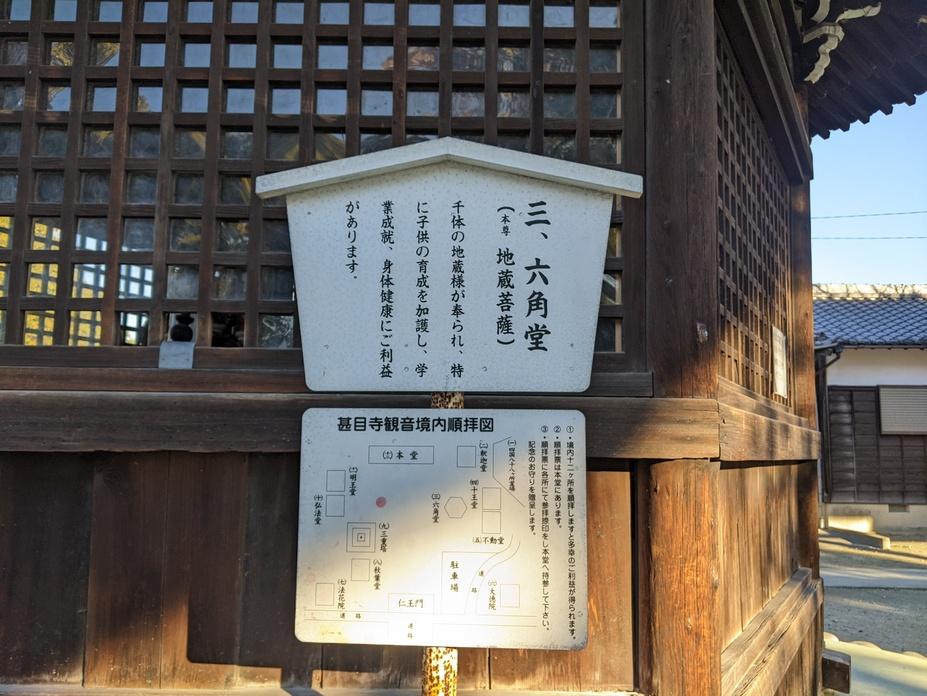 三、六角堂
(本尊 地蔵菩薩)
千体の地蔵様が奉られ、特
に子供の育成を加護し、学
業成就、身体健康にご利益
があります。
甚目寺観音境内順拝図
①・境内十二ヶ所を願拝しますと多幸のご利益が得られます。
②・願拝票は本堂にあります。
③・願拝票に各所にて参拝捺印をし本堂へ持参して下さい。
記念のお守りを贈呈します。
(一)四国八十八ヶ所霊場
(二)釈迦堂
(三)六角堂
(四)十王堂
(五)不動堂
(六)大徳院
(七)法花院
(八)秋葉堂
(九)三重塔
(十)弘法堂
(十一)明王堂
(十二)本堂
駐車場
仁王門
道路
道路
道路